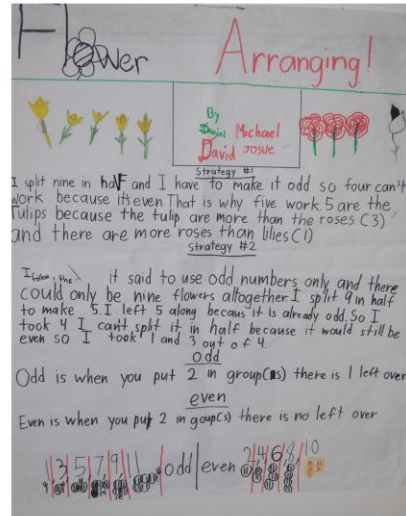 Flower Arranging!
By
Daniel Michael
David Josue
Strategy #1
I split nine in half and I have to make it odd so four can't
work because it's even. That is why five work. 5 are the
Tulips because the tulip are more than the roses (3)
and there are more roses than lilies (1)
Strategy #2
it said to use odd numbers only and there
could only be nine flowers altogether. I split 9 in half
to make 5. I left 5 along becaus it is already odd. So I
took 4 I can't split it in half because it would still be
even so I took 1 and 3 out of 4.
odd
Odd is when you put 2 in group(s) there is 1 left over
even
Even is when you put 2 in goup(s) there is no left over
1, 3, 5, 7, 9, 11 odd even 2, 4, 6, 8, 10